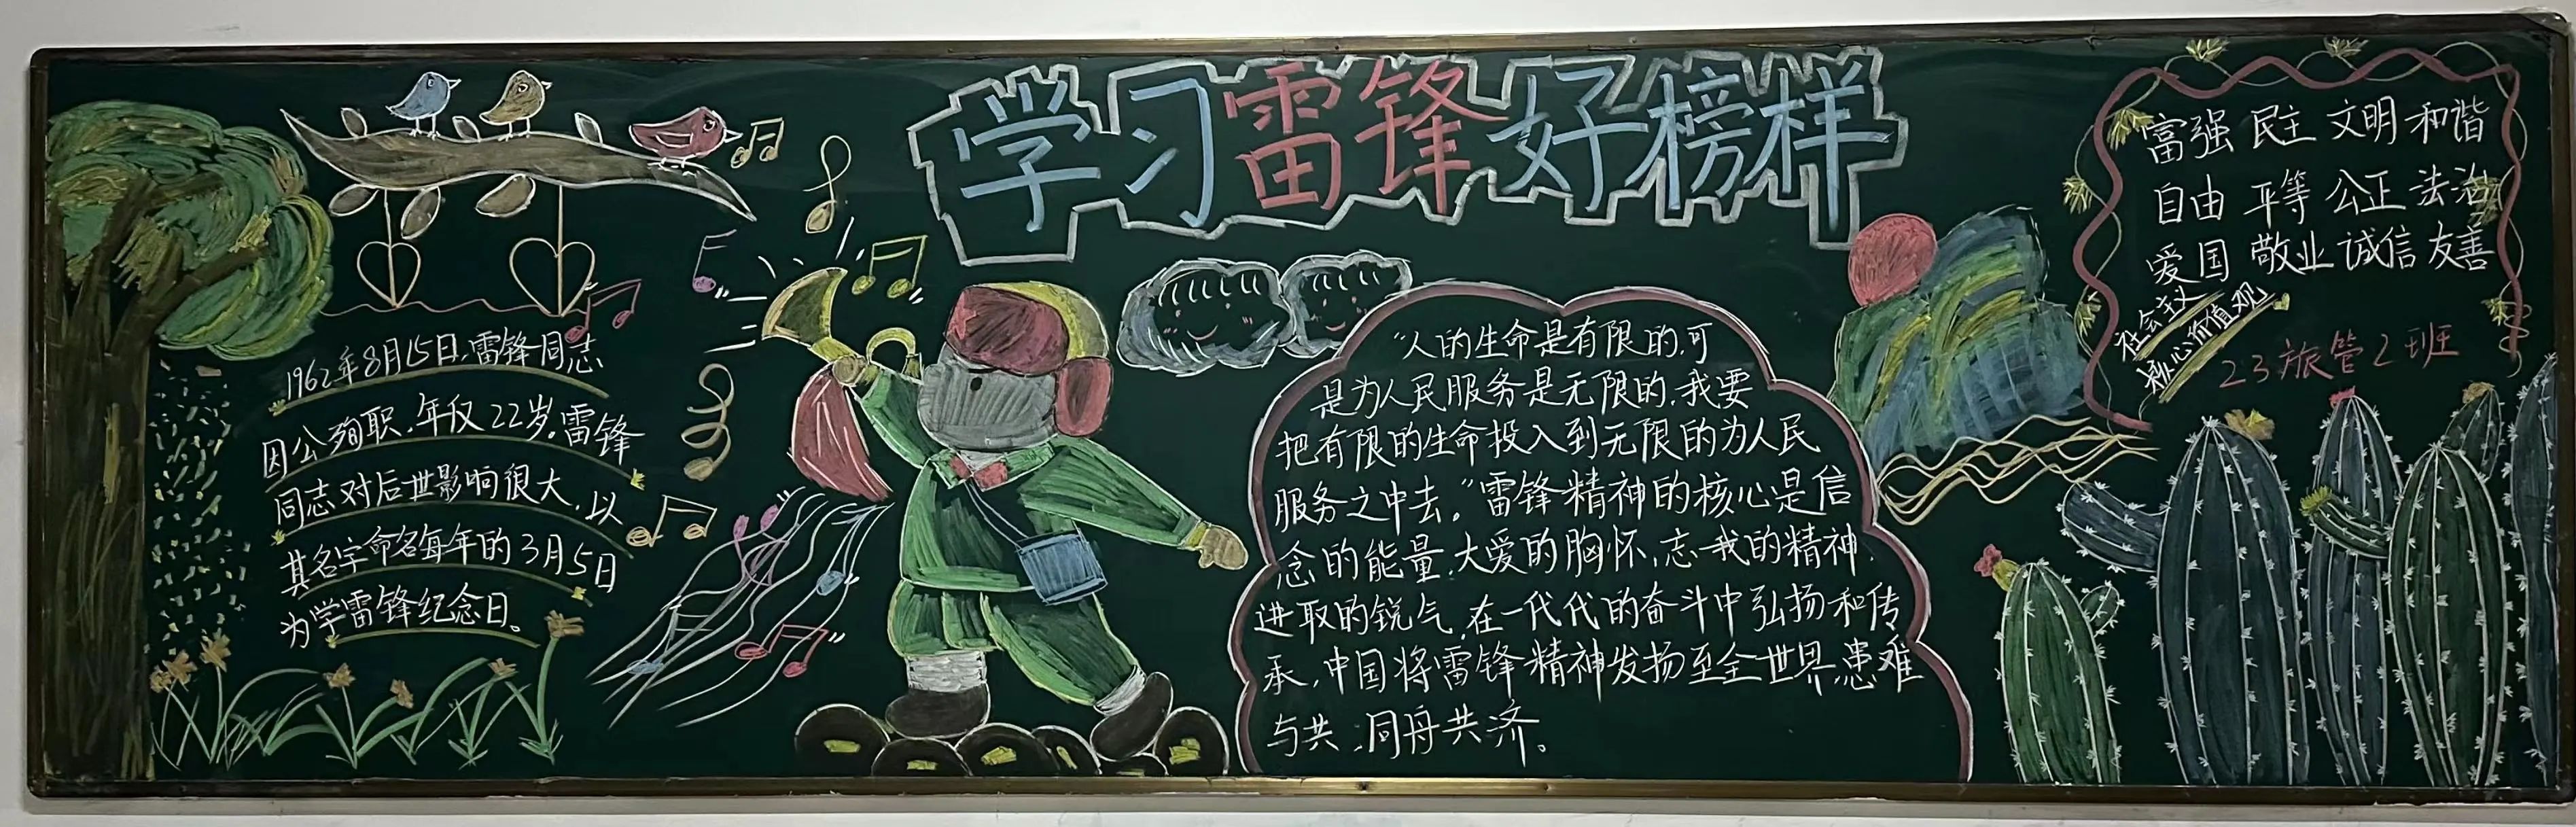 学习雷锋好榜样
1962年8月15日,雷锋同志
因公殉职,年仅22岁。雷锋
同志对后世影响很大,以
其名字命名每年的3月5日
为学雷锋纪念日。
“人的生命是有限的,可
是为人民服务是无限的,我要
把有限的生命投入到无限的为人民
服务之中去。”雷锋精神的核心是信
念的能量,大爱的胸怀,忘我的精神,
进取的锐气,在一代代的奋斗中弘扬和传
承,中国将雷锋精神发扬至全世界,患难
与共,同舟共济。
富强 民主 文明 和谐
自由 平等 公正 法治
爱国 敬业 诚信 友善
社会主义
核心价值观
23旅管2班